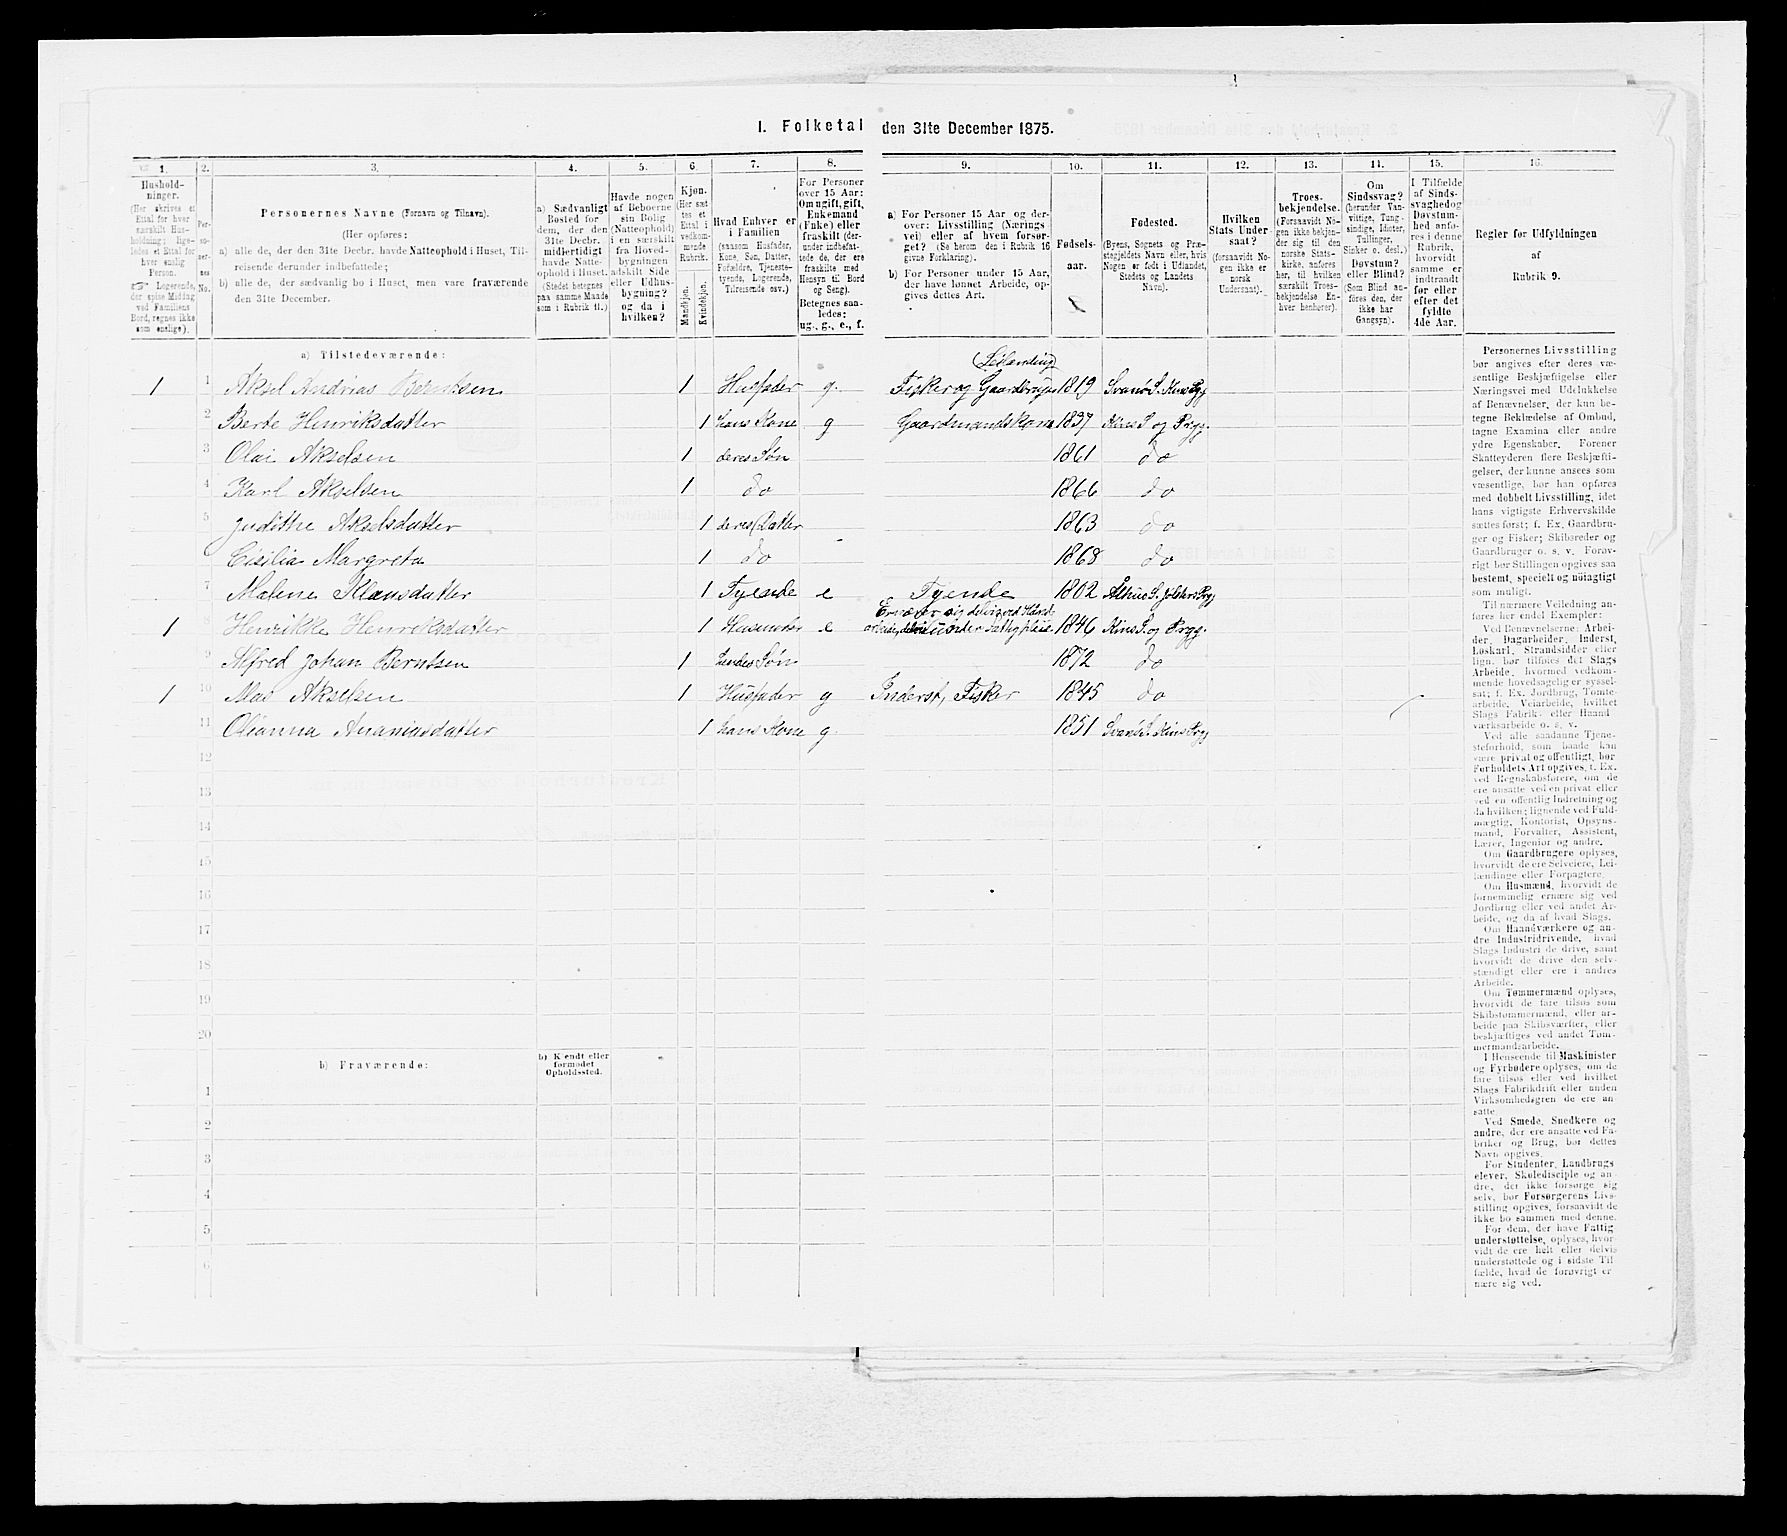 I. Folketal den 31te December 1875.
1. 2. 3. 4. 5. 6. 7. 8. 9. 10. 11. 12. 13. 14. 15. 16.
Husholdninger. (Her skrives et Ettal for hver særskilt Husholdning; ligeledes et Ettal for hver enslig Person. ☞ Logerende, der spise Middag ved Familiens Bord, regnes ikke som enslige).
Personernes No.
Personernes Navne (Fornavn og Tilnavn).
(Her opføres:
a) alle de, der den 31te Decbr. havde Natteophold i Huset, Tilreisende derunder indbefattede;
b) alle de, der sædvanlig bo i Huset, men vare fraværende den 31te December.
a) Sædvanligt Bosted for dem, der den 31te Decbr. midlertidigt havde Natteophold i Huset. (Stedet betegnes paa samme Maade som i Rubrik 11.)
Havde nogen af Beboerne sin Bolig (Natteophold) i en særskilt fra Hovedbygningen adskilt Side eller Udhusbygning? og da i hvilken?
Kjøn. (Her sættes et Ettal i vedkommende Rubrik. Mandkjøn. Kvindekjøn.
Hvad Enhver er i Familien (saasom Husfader, Kone, Søn, Datter, Forældre, Tjenestetyende, Logerende, Tilreisende osv.)
For Personer over 15 Aar: Om ugift, gift, Enkemand (Enke) eller fraskilt (derunder indbefattede de, der ere fraskilte med Hensyn til Bord og Seng). Betegnes saaledes: ug., g., e., f.
a) For Personer 15 Aar og derover: Livsstilling (Næringsvei) eller af hvem forsørget? (Se herom den i Rubrik 16 givne Forklaring).
b) For Personer under 15 Aar, der have lønnet Arbeide, opgives dettes Art.
Fødselsaar.
Fødested. (Byens, Sognets og Præstegjeldets Navn eller, hvis Nogen er født i Udlandet, Stedets og Landets Navn).
Hvilken Stats Undersaat? (forsaavidt Nogen ikke er norsk Undersaat).
Troesbekjendelse. (Forsaavidt Nogen ikke bekjender sig til den norske Statskirke, anføres her, til hvilken særskilt Troesbekjendelse Enhver henhører).
Om Sindssvag? (herunder Vanvittige, Tungsindige, Idioter, Tullinger, Sinker o. desl.) Døvstum? eller Blind? (Som Blind anføres den, der ikke har Gangsyn).
I Tilfælde af Sindssvaghed og Døvstumhed anføres i denne Rubrik, hvorvidt samme er indtraadt før eller efter det fyldte 4de Aar.
Regler for Udfyldningen af Rubrik 9.
a) Tilstedeværende:
Leilænding
1 1 Aksel Andrias Berntsen 1 Husfader g. Fisker og Gaardbruger 1819 Svanø S. Kins Prg
2 Berte Henriksdatter 1 hans Kone g Gaardmandskone 1837 Kins S. og Prg.
3 Olai Akselsen 1 deres Søn 1861 do
4 Karl Akselsen 1 do 1866 do
5 Judithe Akselsdatter 1 deres Datter 1863 do
Cisilia Margreta 1 do 1868 do
7 Malene Klausdatter 1 Tyende e Tyende 1802 S. Jølsters Prg
Ernærer sig delvis ved Haand
1 8 Henrikke Henriksdatter 1 Husmoder e arbeide, delvis under Fattigpleie 1846 Kins S. og Prg.
9 Alfred Johan Berntsen 1 hendes Søn 1872 do
1 10 Mas Akselsen 1 Husfader g Inderst, Fisker 1845 do
11 Olianna Ananiasdatter 1 hans Kone g. 1851 Svanø S. Kins Prg
12
13
14
15
16
17
18
19
20
b) Fraværende: b) Kjendt eller formodet Opholdssted.
1
2
3
4
5
6
Personernes Livsstilling
bør angives efter deres væ-
sentlige Beskjæftigelse eller
Næringsvei med Udelukkelse
af Benævnelser, der kun be-
tegne Beklædelse af Ombud,
tagne Examina eller andre
ydre Egenskaber. Forener
Skatteyderen flere Beskjæfti-
gelser, der kunne ansees som
væsentlige, bør han opføres
med dobbelt Livsstilling, idet
hans vigtigste Erhvervskilde
sættes først; f. Ex. Gaardbru-
ger og Fisker; Skibsreder og
Gaardbruger o. s. v. Forøv-
rigt bør Stillingen opgives saa
bestemt, specielt og nøiagtigt
som muligt.
Til nærmere Veiledning an-
føres her endel Exempler:
Ved Benævnelserne: Arbei-
der, Dagarbeider, Inderst,
Løskarl, Strandsidder eller
lign. bør tilføies det Slags
Arbeide, hvormed vedkom-
mende hovedsagelig er syssel-
sat; f. Ex. Jordbrug, Tomte-
arbeide, Veiarbeide, hvilket
Slags Fabrik- eller Haand-
værksarbeide o. s. v.
Ved alle saadanne Tjene-
steforhold, som baade kan
være privat og offentligt, bør
Forholdets Art opgives, f. Ex.
ved Regnskabsførere, om de
ere ansatte ved en privat eller
ved en offentlig Indretning og
da hvilken; lignende ved Fuld-
mægtig, Kontorist, Opsyns-
mand, Forvalter, Assistent,
Lærer, Ingeniør og andre.
Om Gaardbrugere oplyses,
hvorvidt de ere Selveiere, Lei-
lændinge eller Forpagtere.
Om Husmænd, hvorvidt de
fornemmelig ernære sig ved
Jordbrug eller ved andet Ar-
beide, og da af hvad Slags.
Om Haandværkere og an-
dre Industridrivende, hvad
Slags Industri de drive, samt
hvorvidt de drive den selv-
stændigt eller ere i andres
Arbeide.
Om Tømmermænd oplyses,
hvorvidt de fare tilsøs som
Skibstømmermænd, eller ar-
beide paa Skibsværfter, eller
beskjæftiges ved andet Tøm-
mermandsarbeide.
I Henseende til Maskinister
og Fyrbødere oplyses, om de
fare tilsøs eller ved hvilket
Slags Fabrikdrift eller anden
Virksomhedsgren de ere an-
satte.
Ved Smede, Snedkere og
andre, der ere ansatte ved Fa-
briker og Brug, bør dettes
Navn opgives.
For Studenter, Landbrugs
elever, Skoledisciple og an-
dre, der ikke forsørge sig
selv, bør Forsørgerens Livs-
stilling opgives, forsaavidt de
ikke bo sammen med denne.
For dem, der have Fattig
understøttelse, oplyses, hvor-
vidt de ere helt eller delvis
understøttede og i sidste Til
fælde, hvad de forøvrigt er
nære sig ved.